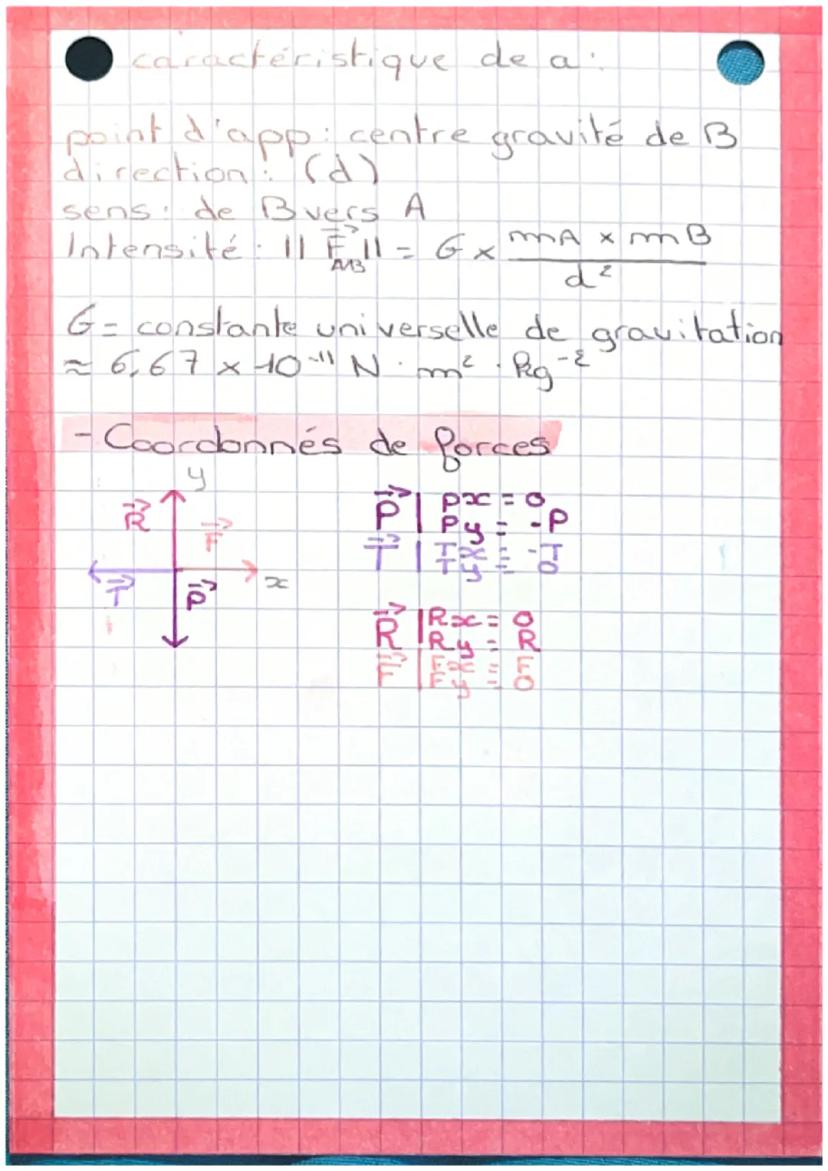 caractéristique de a :
point d'app : centre gravité de B
direction : (d)
sens : de B vers A
Intensité : || F⃗ A/B || = G x mA x mB / d²
G = constante universelle de gravitation
≈ 6,67 x 10⁻¹¹ N . m² . kg⁻²
- Coordonnés de forces
y
R⃗ F⃗
T⃗ P⃗ x
P⃗ | Px = 0
Py = -P
T⃗ | Tx = -T
Ty = 0
R⃗ | Rx = 0
Ry = R
F⃗ | Fx = F
Fy = 0